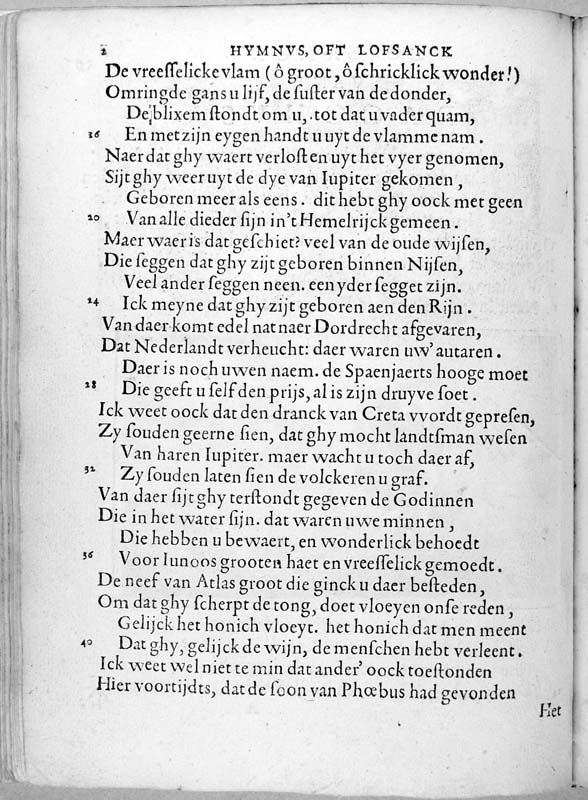 2 HYMNVS, OFT LOFSANCK
De vreeſſelicke vlam ( ô groot, ô ſchricklick wonder!)
Omringde gans u lijf, de ſuſter van de donder,
De blixem ſtondt om u, tot dat u vader quam,
16 En met zijn eygen handt u uyt de vlamme nam.
Naer dat ghy waert verloſt en uyt het vyer genomen,
Sijt ghy weer uyt de dye van Iupiter gekomen,
Geboren meer als eens. dit hebt ghy oock met geen
20 Van alle die der ſijn in't Hemelrijck gemeen.
Maer waer is dat geſchiet? veel van de oude wijſen,
Die ſeggen dat ghy zijt geboren binnen Nijſen,
Veel ander ſeggen neen. een yder ſegget zijn.
24 Ick meyne dat ghy zijt geboren aen den Rijn.
Van daer komt edel nat naer Dordrecht afgevaren,
Dat Nederlandt verheucht: daer waren uw' autaren.
Daer is noch uwen naem. de Spaenjaerts hooge moet
28 Die geeft u ſelf den prijs, al is zijn druyve ſoet.
Ick weet oock dat den dranck van Creta vvordt gepreſen,
Zy ſouden geerne ſien, dat ghy mocht landtſman weſen
Van haren Iupiter. maer wacht u toch daer af,
32 Zy ſouden laten ſien de volckeren u graf.
Van daer ſijt ghy terſtondt gegeven de Godinnen
Die in het water ſijn. dat waren uwe minnen,
Die hebben u bewaert, en wonderlick behoedt
36 Voor Iunoos grooten haet en vreeſſelick gemoedt.
De neef van Atlas groot die ginck u daer beſteden,
Om dat ghy ſcherpt de tong, doet vloeyen onſe reden,
Gelijck het honich vloeyt. het honich dat men meent
40 Dat ghy, gelijck de wijn, de menſchen hebt verleent.
Ick weet wel niet te min dat ander' oock toeſtonden
Hier voortijdts, dat de ſoon van Phœbus had gevonden
Het